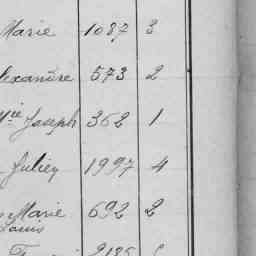 Marie 1087 3
lexandre 573 2
Mie Joseph 362 1
Julien 1997 4
Marie 692 2
Louis